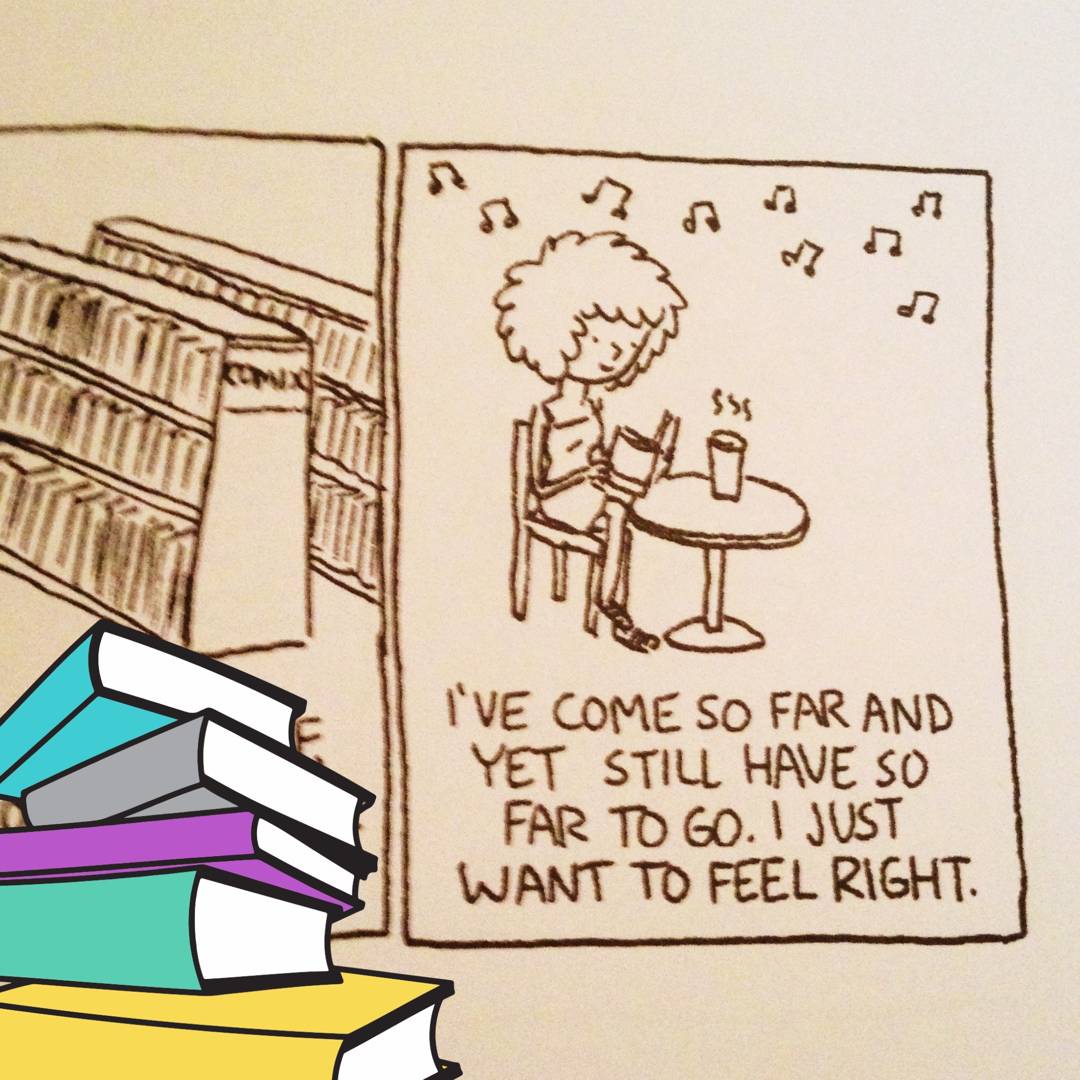 COMIX
I'VE COME SO FAR AND
YET STILL HAVE SO
FAR TO GO. I JUST
WANT TO FEEL RIGHT.